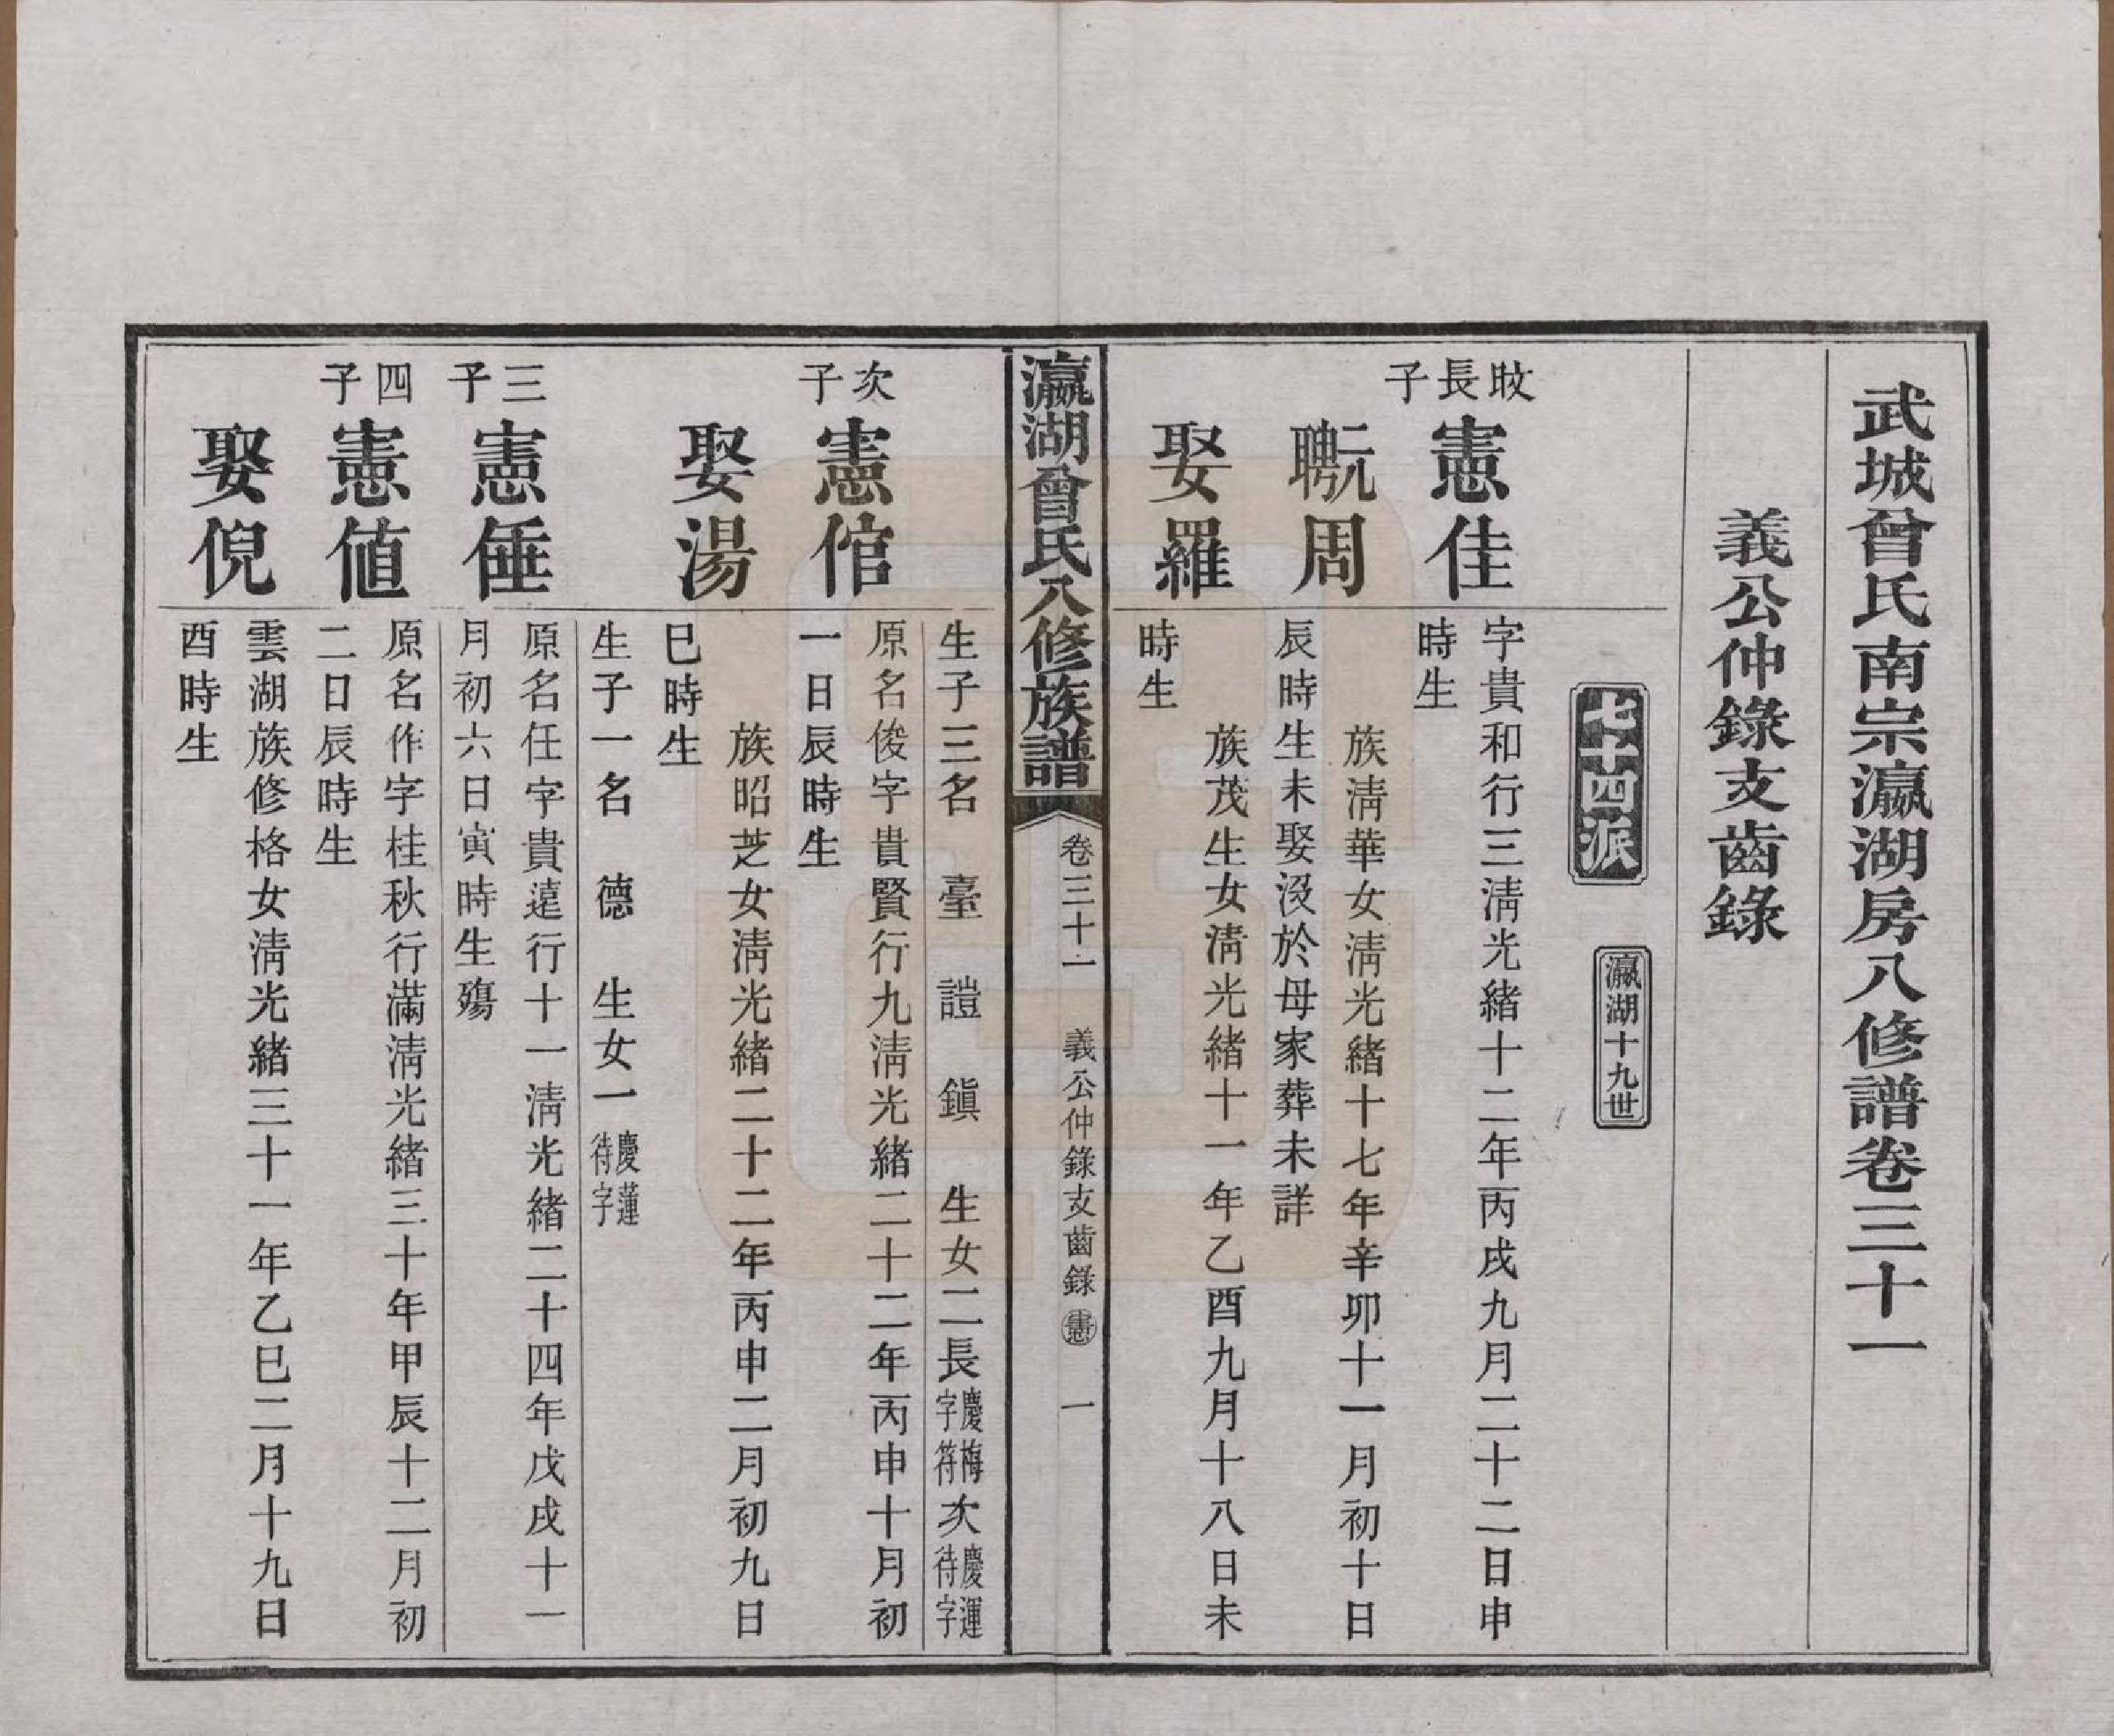 武城曾氏南宗瀛湖房八修譜卷三十一
義公仲錄支齒錄
七十四派
瀛湖十九世
旼長子
憲佳
字貴和行三淸光緖十二年丙戌九月二十二日申
時生
元聘周
族淸華女淸光緖十七年辛卯十一月初十日
辰時生未娶沒於母家葬未詳
娶羅
族茂生女淸光緖十一年乙酉九月十八日未
時生
瀛湖曾氏八修族譜
卷三十一
義公仲錄支齒錄
憲
一
生子三名 臺 諠 鎭 生女二長慶梅字符次慶運待字
次子
憲倌
原名俊字貴賢行九淸光緖二十二年丙申十月初
一日辰時生
娶湯
族昭芝女淸光緖二十二年丙申二月初九日
巳時生
生子一名 德 生女一慶蓮待字
三子
憲倕
原名任字貴遠行十一淸光緖二十四年戊戌十一
月初六日寅時生殤
四子
憲値
原名作字桂秋行滿淸光緖三十年甲辰十二月初
二日辰時生
娶倪
雲湖族修格女淸光緖三十一年乙巳二月十九日
酉時生